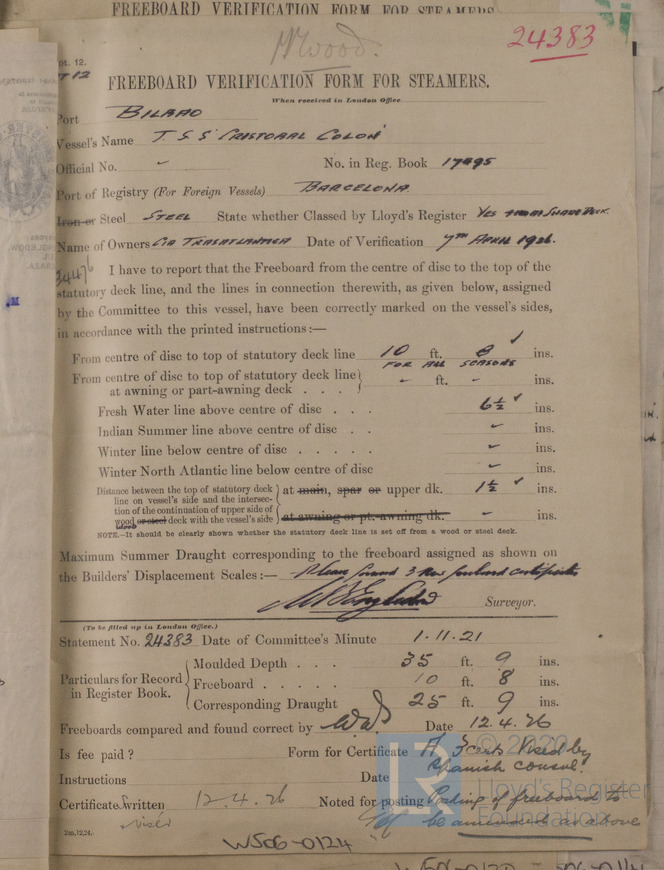 FREEBOARD VERIFICATION FORM FOR STEAMERS
24383
Wood.
pt. 12.
FREEBOARD VERIFICATION FORM FOR STEAMERS.
When received in London Office
Port BILBAO
Vessel's Name T.S.S "CRISTOBAL COLON"
Official No. No. in Reg. Book 17895
Port of Registry (For Foreign Vessels) BARCELONA.
Iron or Steel STEEL State whether Classed by Lloyd's Register YES
Name of Owners Cia TRASATLANTICA Date of Verification 7TH APRIL 1926.
I have to report that the Freeboard from the centre of disc to the top of the
statutory deck line, and the lines in connection therewith, as given below, assigned
by the Committee to this vessel, have been correctly marked on the vessel's sides,
in accordance with the printed instructions:—
From centre of disc to top of statutory deck line 10 ft. 8 ins.
FOR ALL SEASONS
From centre of disc to top of statutory deck line
at awning or part-awning deck . . . - ft. - ins.
Fresh Water line above centre of disc . . . 6½ ins.
Indian Summer line above centre of disc . . - ins.
Winter line below centre of disc . . . . . - ins.
Winter North Atlantic line below centre of disc - ins.
Distance between the top of statutory deck
line on vessel's side and the intersec- at main, spar or upper dk. 1½ ins.
tion of the continuation of upper side of
wood or steel deck with the vessel's side at awning or pt.-awning dk. - ins.
wood
NOTE.—It should be clearly shown whether the statutory deck line is set off from a wood or steel deck.
Maximum Summer Draught corresponding to the freeboard assigned as shown on
the Builders' Displacement Scales:— Please forward 3 new freeboard certificates
Surveyor.
(To be filled up in London Office.)
Statement No. 24383 Date of Committee's Minute 1.11.21
Particulars for Record in Register Book.
Moulded Depth . . . 35 ft. 9 ins.
Freeboard . . . . . 10 ft. 8 ins.
Corresponding Draught 25 ft. 9 ins.
Freeboards compared and found correct by Date 12.4.26
Is fee paid? Form for Certificate A 3 certs Vised by
Spanish consul.
Instructions Date
Certificates written 12.4.26 Noted for posting Posting of freeboard to
be amended as above
visés
2m,12,24.
W506-0124
© 2020
Lloyd's Register
Foundation
LR